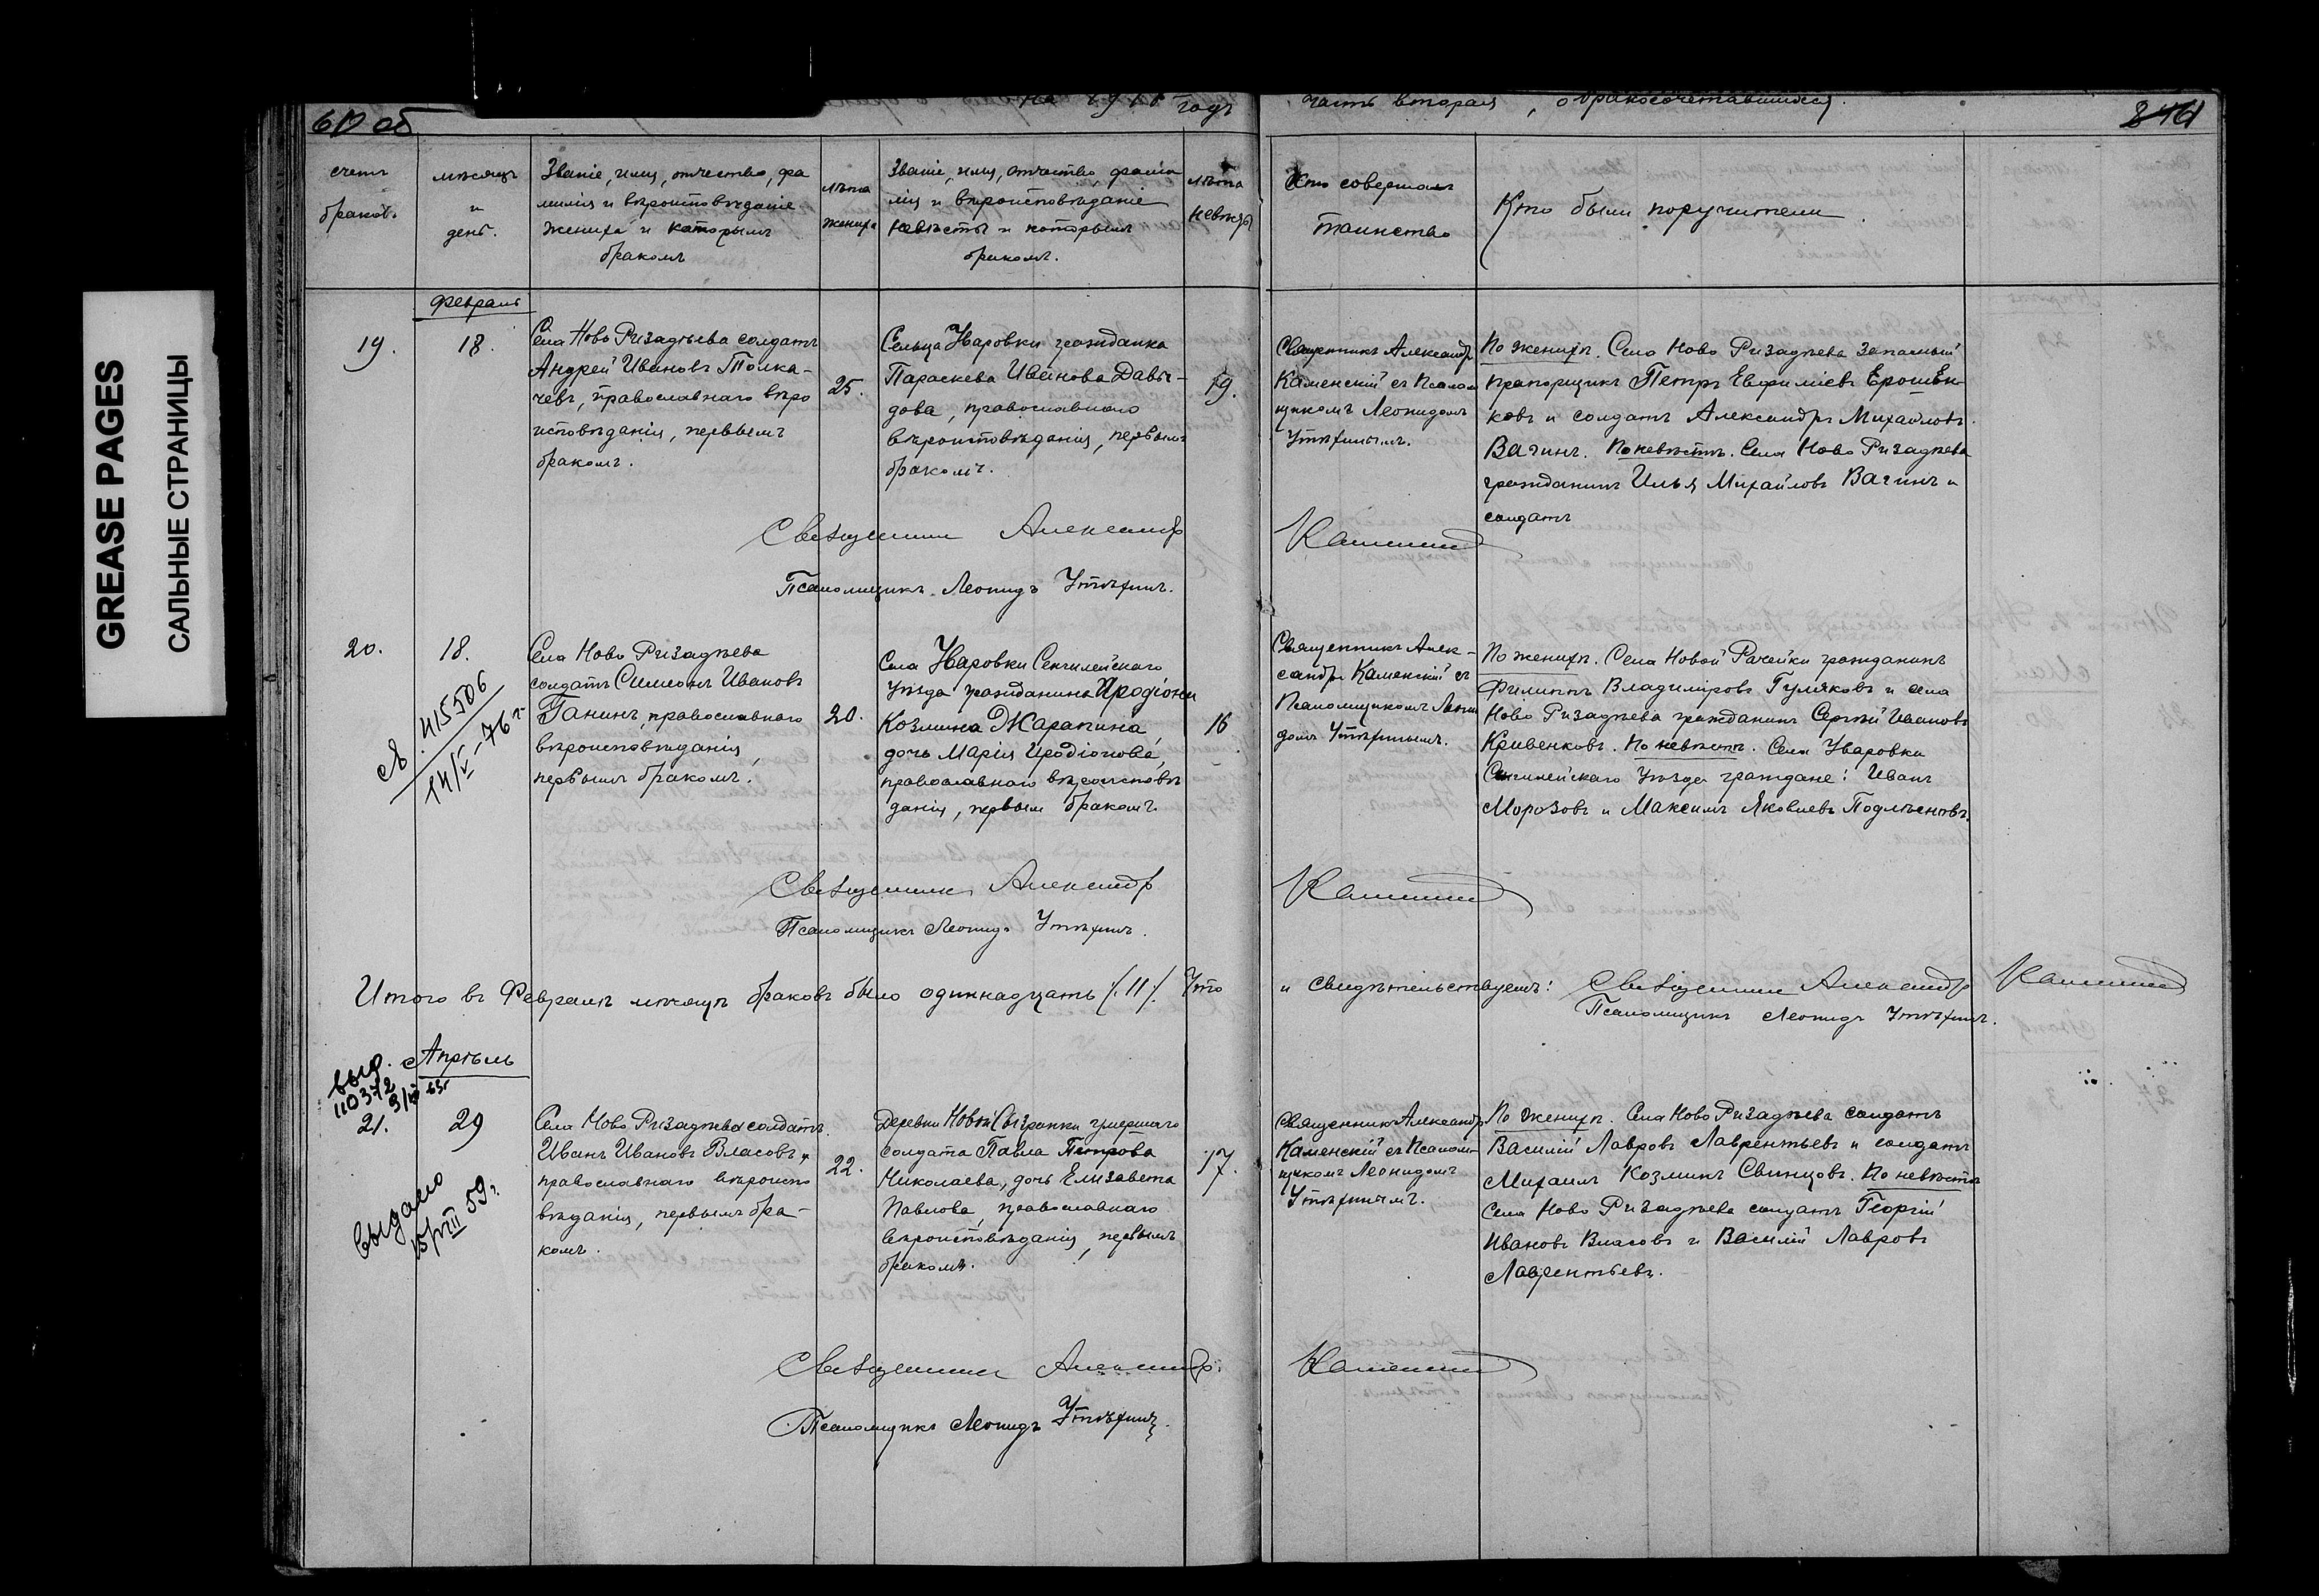 GREASE PAGES
САЛЬНЫЕ СТРАНИЦЫ
60 об
на 1918 годъ
часть вторая, о бракосочетавшихся.
счетъ
браковъ.
мѣсяцъ
и
день.
Званіе, имя, отчество, фа
милія и вѣроисповѣданіе
жениха и которымъ
бракомъ
лѣта
жениха
Званіе, имя, отчество, фами
лія и вѣроисповѣданіе
невѣсты и которымъ
бракомъ.
лѣта
невѣсты
Кто совершалъ
таинство
Кто были поручители.
Февраль
19.
18.
Села Ново Ризадѣева солдатъ
Андрей Ивановъ Толка-
чевъ, православнаго вѣро
исповѣданія, первымъ
бракомъ.
25.
Сельца Уваровки гражданка
Параскева Иванова Давы-
дова, православнаго
вѣроисповѣданія, первымъ
бракомъ.
19.
Священникъ Александръ
Каменскій съ Псалом
щикомъ Леонидомъ
Утѣхинымъ.
По женихѣ. Села Ново Ризадѣева запасный
прапорщикъ Петръ Евфиміевъ Ерошен-
ковъ и солдатъ Александръ Михайловъ
Вагинъ. По невѣстѣ. Села Ново Ризадѣева
гражданинъ Илья Михайловъ Вагинъ и
солдатъ
Священникъ Александръ Каменскій
Псаломщикъ Леонидъ Утѣхинъ.
20.
18.
415506
14/V-76 г
Села Ново Ризадѣева
солдатъ Симеонъ Ивановъ
Ганинъ, православнаго
вѣроисповѣданія,
первымъ бракомъ.
20.
Села Уваровки Сенгилейскаго
Уѣзда гражданина Иродіона
Козмина Жарапина,
дочь Марія Иродіонова,
православнаго вѣроисповѣ
данія, первымъ бракомъ.
16
Священникъ Алек-
сандръ Каменскій съ
Псаломщикомъ Леони
домъ Утѣхинымъ.
По женихѣ. Села Новой Рачейки гражданинъ
Филиппъ Владиміровъ Гумяковъ и села
Ново Ризадѣева гражданинъ Сергѣй Ивановъ
Кривенковъ. По невѣстѣ. Села Уваровки
Сенгилейскаго Уѣзда граждане: Иванъ
Морозовъ и Максимъ Яковлевъ Подлѣсновъ.
Священникъ Александръ Каменскій
Псаломщикъ Леонидъ Утѣхинъ.
Итого въ Февралѣ мѣсяцѣ браковъ было одиннадцать /.11/. Что и свидѣтельствуемъ: Священникъ Александръ Каменскій
Псаломщикъ Леонидъ Утѣхинъ.
Апрѣль
выд.
110372
63г
21.
29
выдано
15/VIII 59г.
Села Ново Ризадѣева солдатъ
Иванъ Ивановъ Власовъ,
православнаго вѣроиспо
вѣданія, первымъ бра-
комъ.
22.
Деревни Новой Сызранки умершаго
солдата Павла Петрова
Николаева, дочь Елизавета
Павлова, православнаго
вѣроисповѣданія, первымъ
бракомъ.
17.
Священникъ Александръ
Каменскій съ Псалом-
щикомъ Леонидомъ
Утѣхинымъ.
По женихѣ. Села Ново Ризадѣева солдатъ
Василій Лавровъ Лаврентьевъ и солдатъ
Михаилъ Козминъ Свинцовъ. По невѣстѣ
Села Ново Ризадѣева солдатъ Георгій
Ивановъ Власовъ и Василій Лавровъ
Лаврентьевъ.
Священникъ Александръ Каменскій
Псаломщикъ Леонидъ Утѣхинъ.